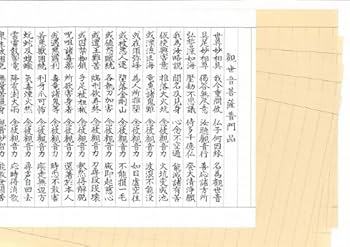 觀世音菩薩普門品
世尊妙相具 我今重問彼 佛子何因緣 名為觀世音
具足妙相尊 偈答無盡意 汝聽觀音行 善應諸方所
弘誓深如海 歷劫不思議 侍多千億佛 發大清淨願
我為汝略說 聞名及見身 心念不空過 能滅諸有苦
假使興害意 推落大火坑 念彼觀音力 火坑變成池
或漂流巨海 龍魚諸鬼難 念彼觀音力 波浪不能沒
或在須彌峰 為人所推墮 念彼觀音力 如日虛空住
或被惡人逐 墮落金剛山 念彼觀音力 不能損一毛
或值怨賊繞 各執刀加害 念彼觀音力 咸即起慈心
或遭王難苦 臨刑欲壽終 念彼觀音力 刀尋段段壞
或囚禁枷鎖 手足被杻械 念彼觀音力 釋然得解脫
咒詛諸毒藥 所欲害身者 念彼觀音力 還著於本人
或遇惡羅剎 毒龍諸鬼等 念彼觀音力 時悉不敢害
若惡獸圍繞 利牙爪可怖 念彼觀音力 疾走無邊方
蚖蛇及蝮蠍 氣毒煙火然 念彼觀音力 尋聲自回去
雲雷鼓掣電 降雹澍大雨 念彼觀音力 應時得消散